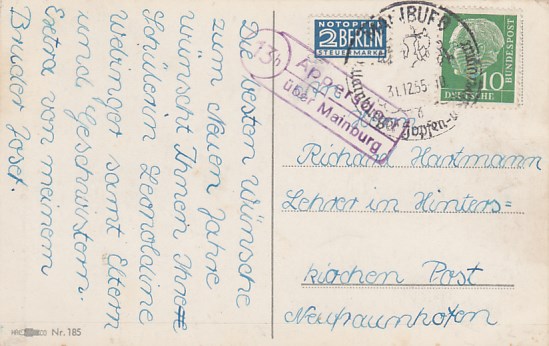 Die besten Wünsche
zum Neuen Jahre
wünscht Ihnen Ihre
Schülerin Leopoldine
Weringer samt Eltern
und Geschwistern.
Extra von meinem
Bruder Josef.
NOTOPFER
2 BERLIN
STEUERMARKE
MAINBURG
31.12.55.-10
Hopfen
10
DEUTSCHE
BUNDESPOST
13b
Appersdorf
über Mainburg
Herrn
Richard Hartmann
Lehrer in Hinters=
kirchen Post
Neufraunhofen
Nr. 185